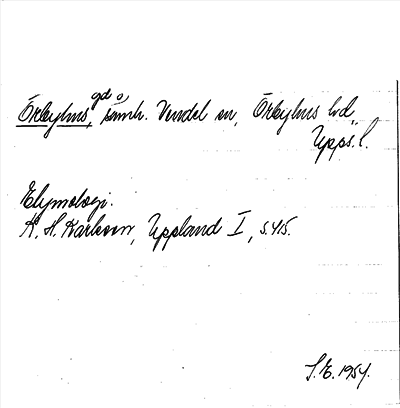 Örbyhus, gd o, jvmk. Vendel sn, Örbyhus hd,
Upps. l.
Etymologi.
K. H. Karlsson, Uppland I, s. 415.
1954.